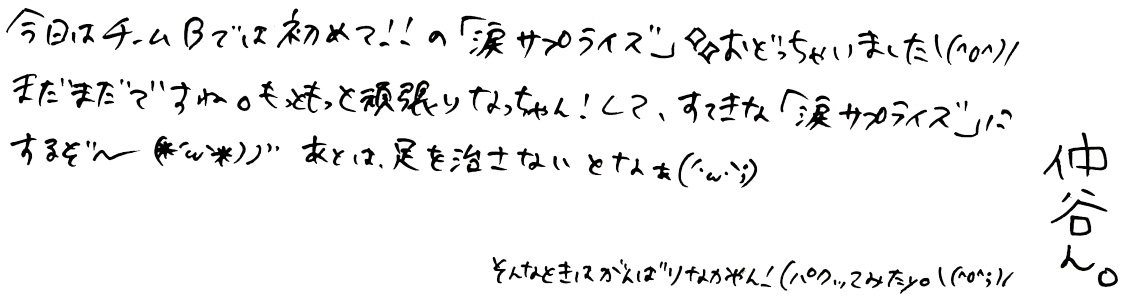 今日はチームBでは初めて!!の「涙サプライズ」◇◇おどっちゃいました\(^o^)/
まだまだですね。もっともっと頑張りなっちゃん！して、すてきな「涙サプライズ」に
するぞ〜(*´ω`*)ノ゙ あとは、足を治さないとなぁ(´･ω･`;)
仲谷ん。
そんなときはがんばりなかやん！(パクってみたy。\(^o^;)/